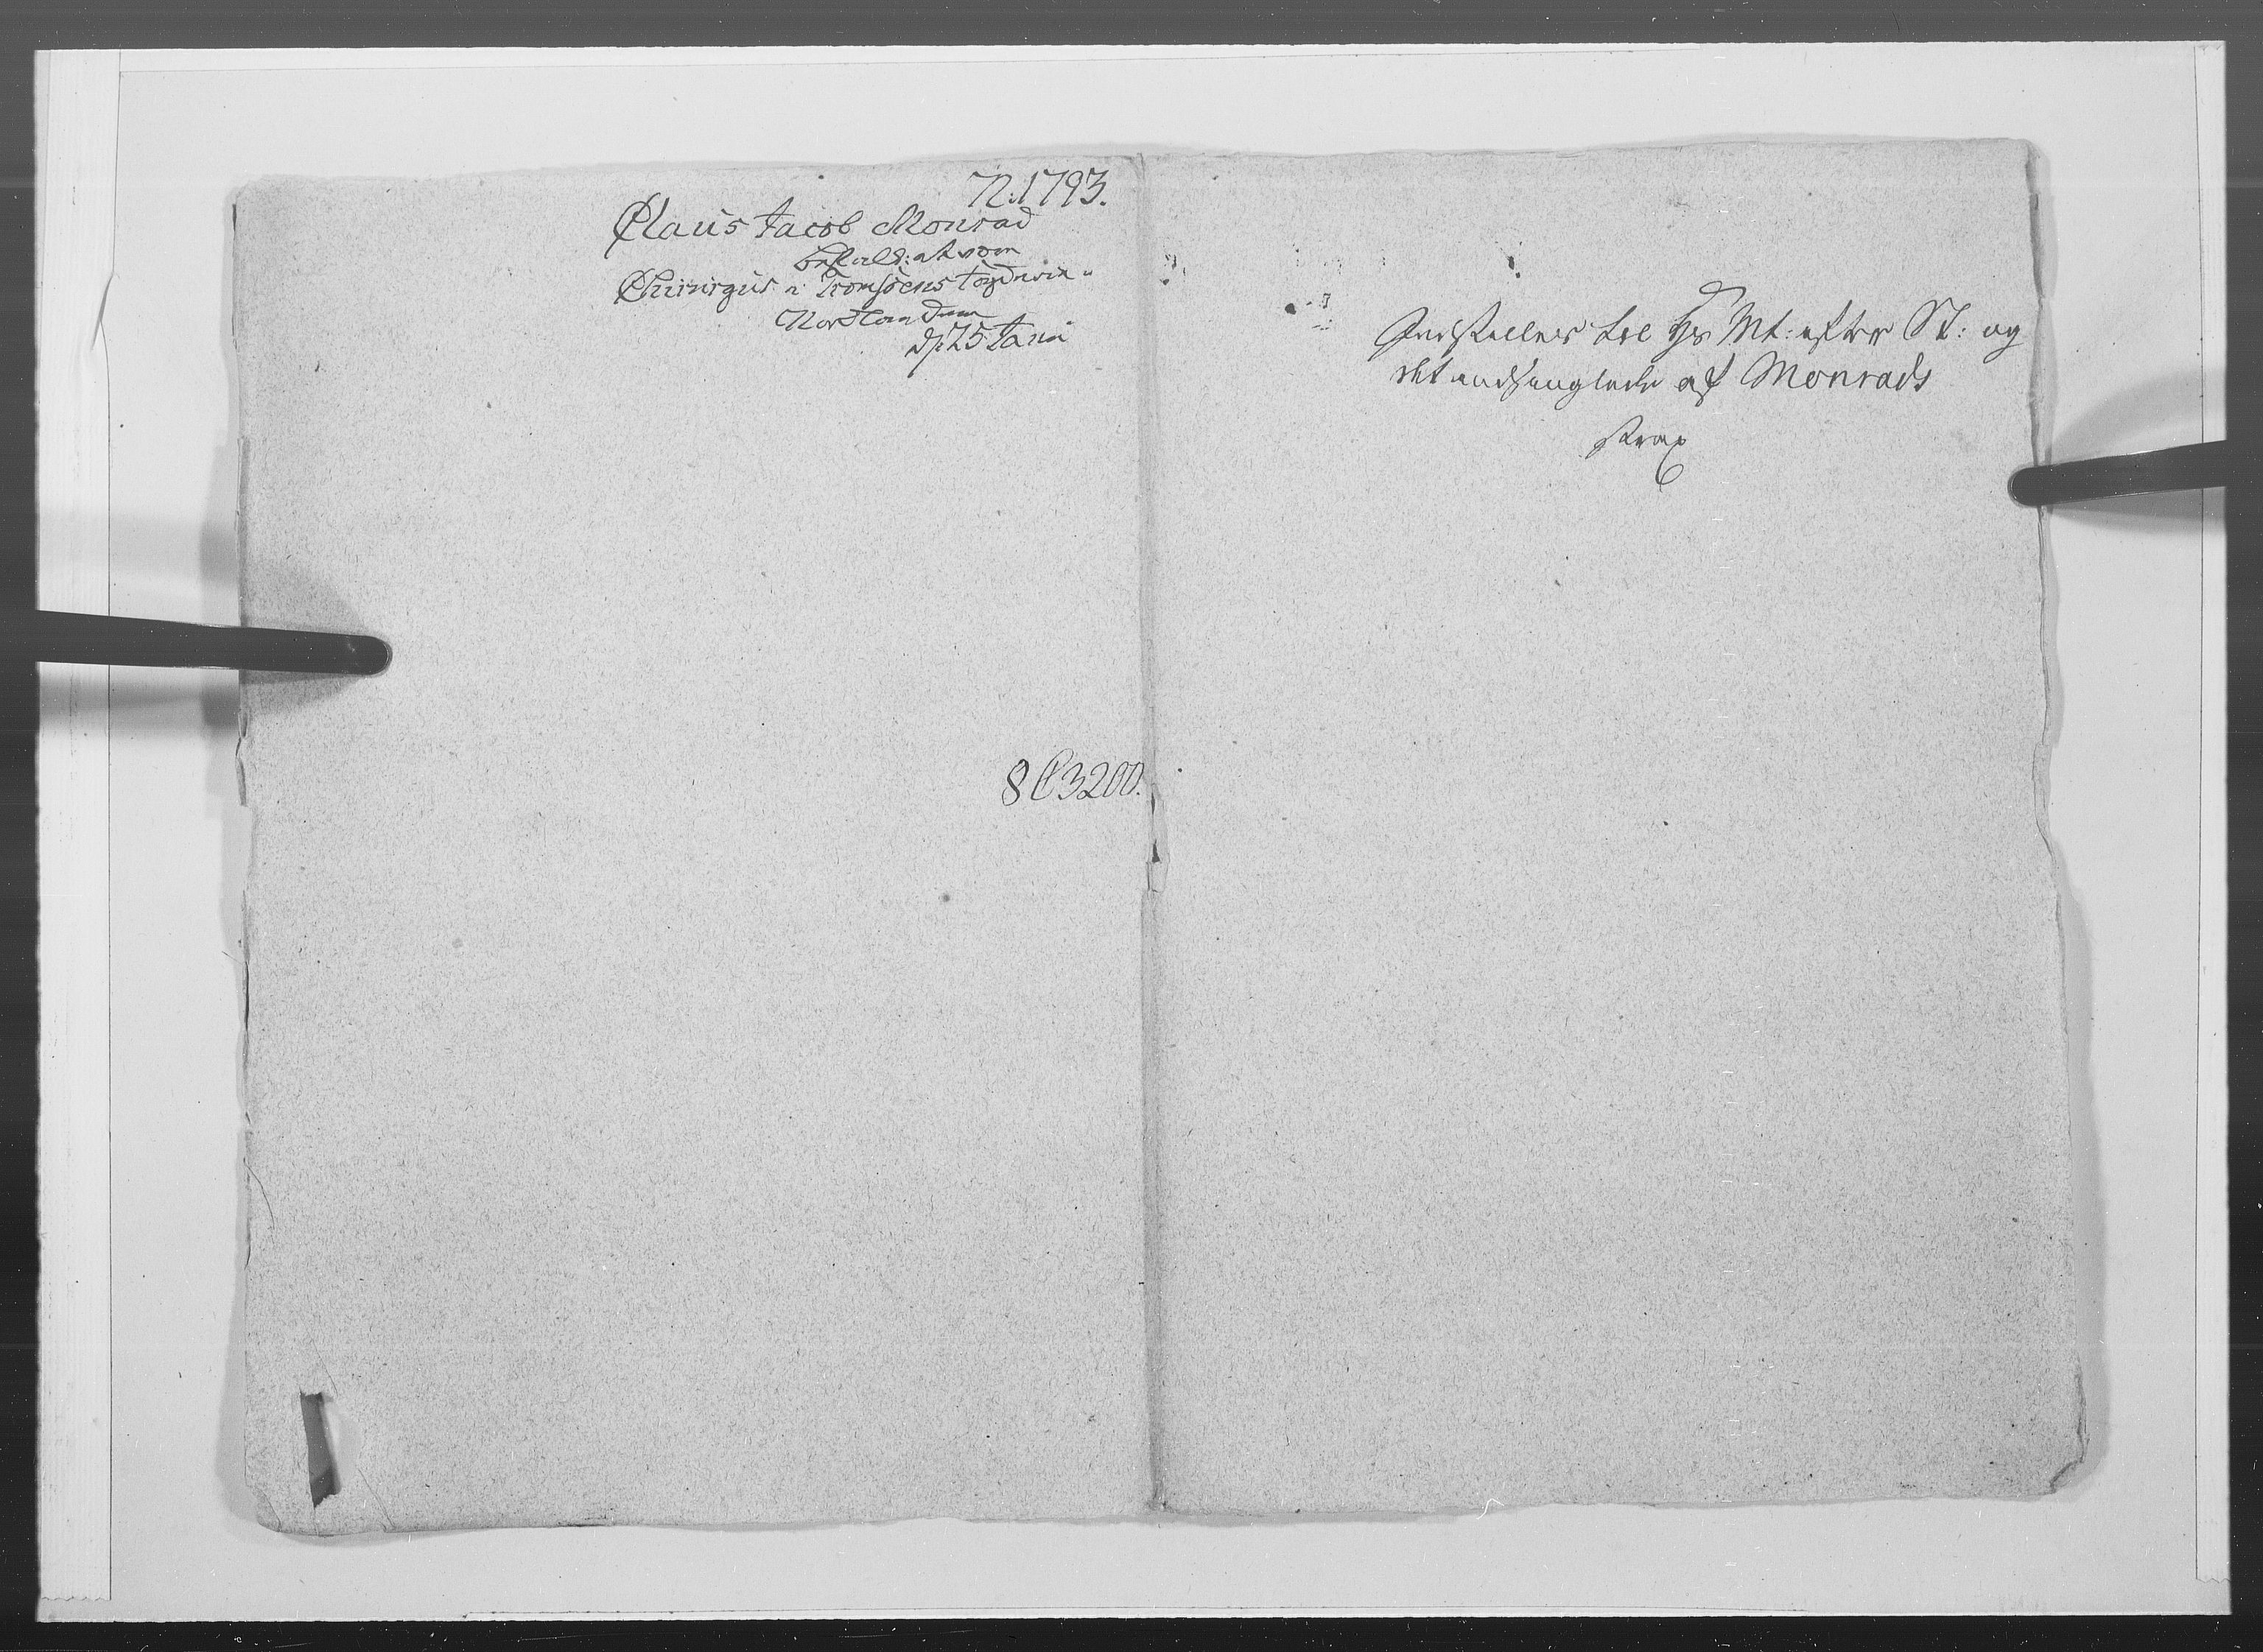 N: 1793.
Claus Jacob Monrad
bestalt: at vom
Chirurgus i Tromsöens fogderie
Nordlandene
d: 25 Janu
8C3200.
Indstilles til Hs Mt: efter St: og
det andsøgende af Monrads
strax